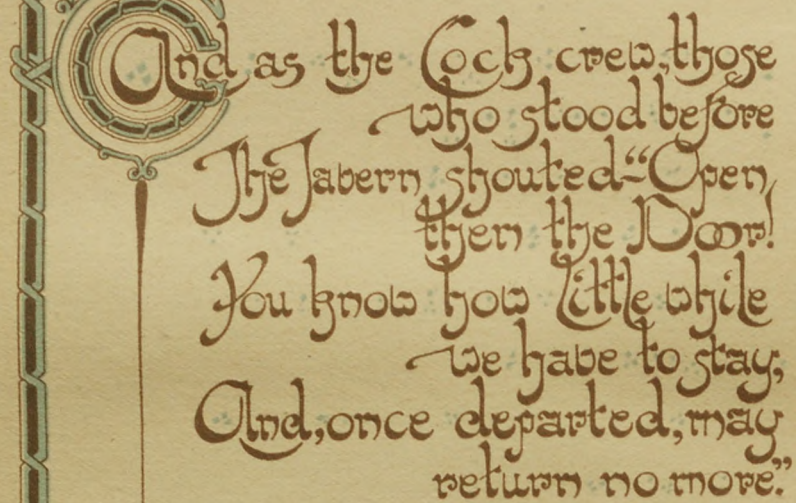 And as the Cock crew, those
who stood before
The Tavern shouted—"Open
then the Door!
You know how little while
we have to stay,
And, once departed, may
return no more."